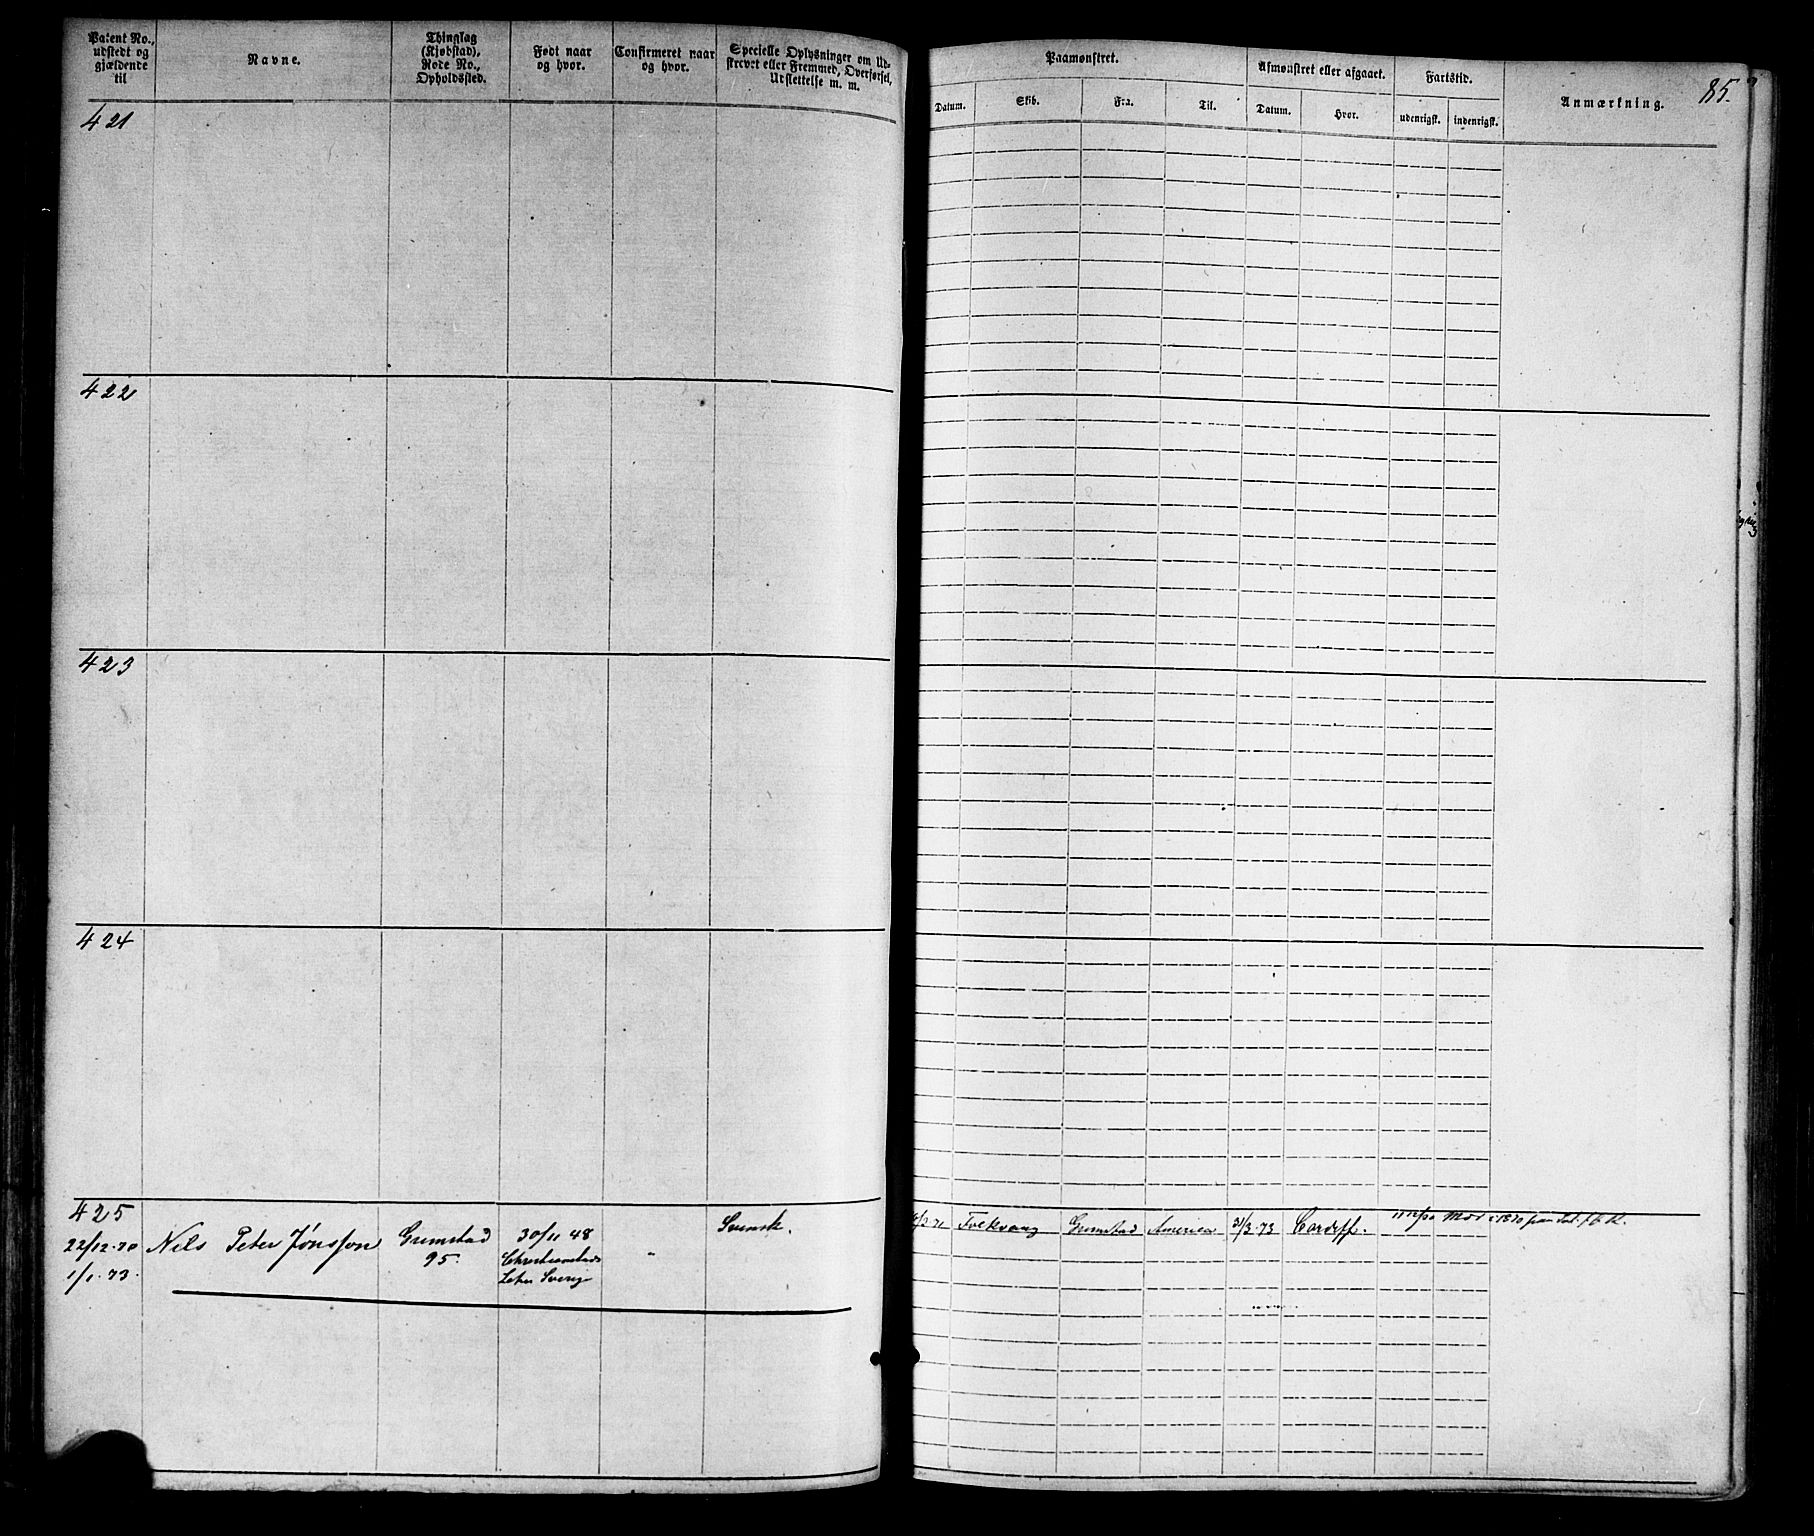 Patent No., udstedt og gjældende til
Navne.
Thinglag (Kjøbstad), Rode No., Opholdssted.
Født naar og hvor.
Confirmeret naar og hvor.
Specielle Oplysninger om Udskrevet eller Fremmed, Overførsel, Udslettelse m. m.
Paamønstret.
Afmønstret eller afgaaet.
Fartstid.
Anmærkning.
85.
Datum.
Skib.
Fra.
Til.
Datum.
Hvor.
udenrigsk.
indenrigsk.
421
422
423
424
425
22/12.70
1/1.73.
Nils Peter Jönsson
Grimstad
95.
30/11 48
Christianstads
Sverig
"
Svensk.
Folkvang
Grimstad
America
31/3.73
Cardiff.